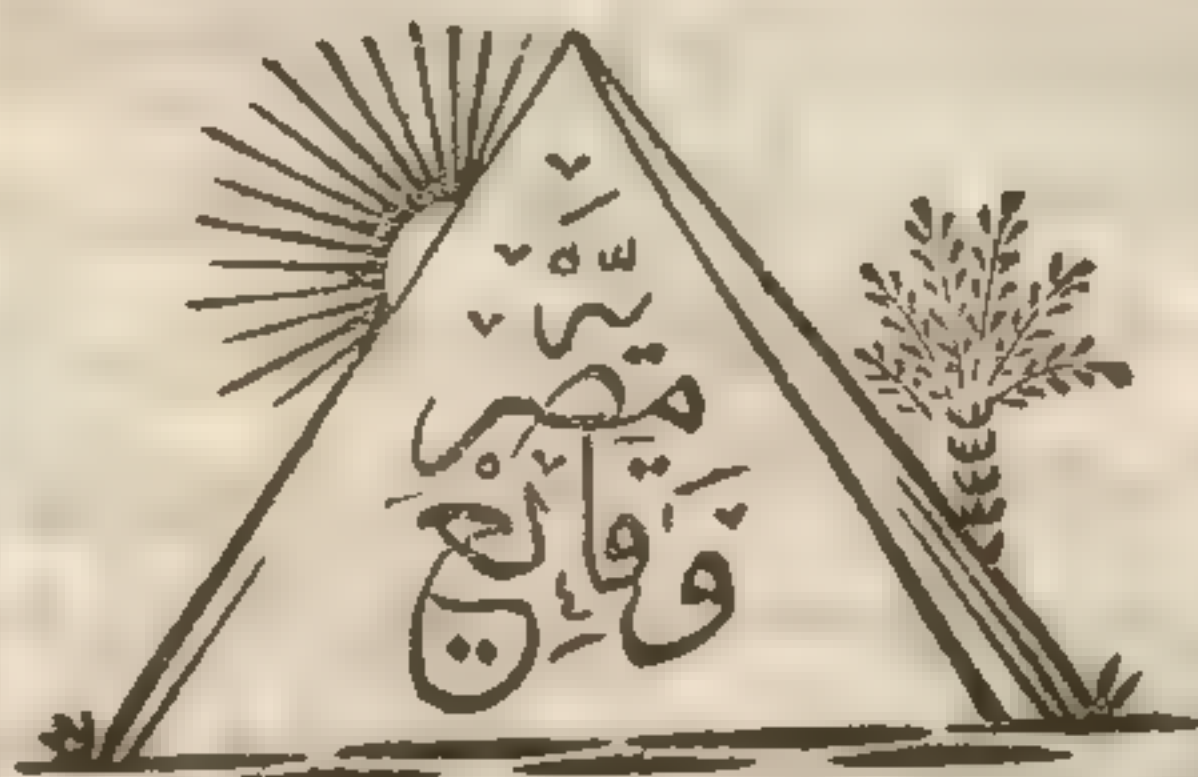 وقايع
مصريه